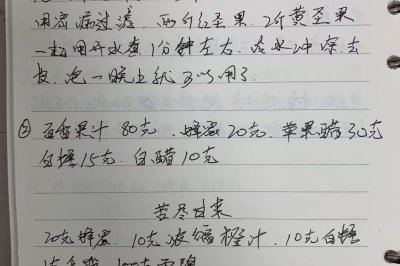 用密漏过滤，两个红圣果，2斤黄圣果
一起用开水煮1分钟左右，冷水冲凉去
皮，泡一晚上就可以用了.
② 百香果汁 80克、蜂蜜20克、苹果醋30克
白糖15克、白醋10克
苦尽甘来
20克蜂蜜，10克浓缩橙汁，10克白糖